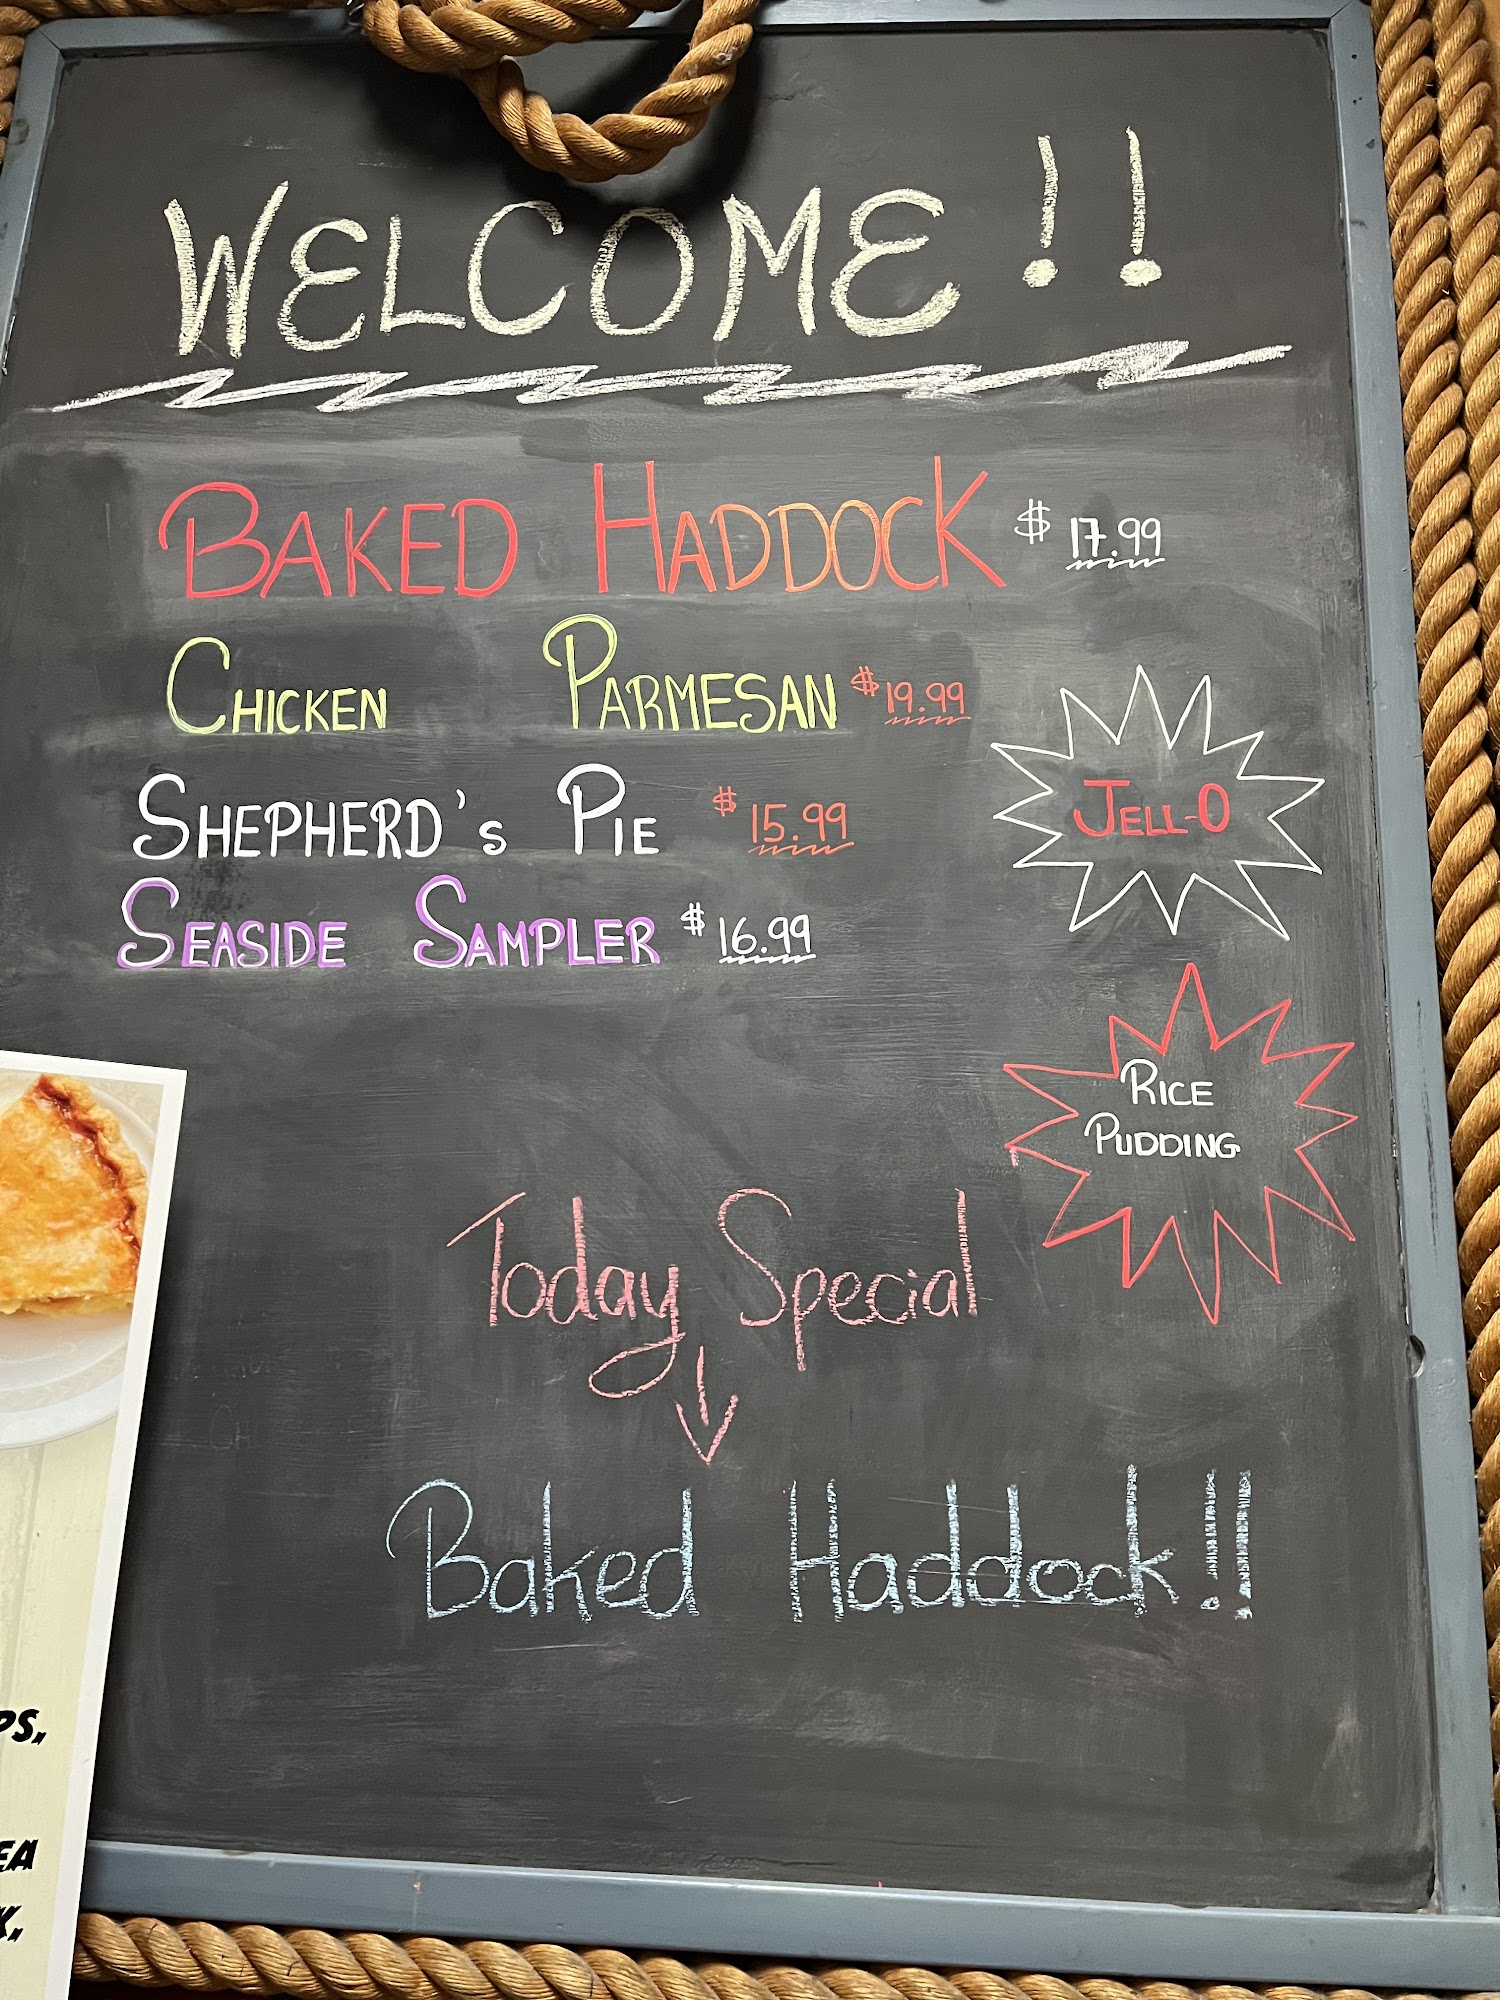 WELCOME!!
BAKED HADDOCK $17.99
CHICKEN PARMESAN $19.99
SHEPHERD's PIE $15.99
SEASIDE SAMPLER $16.99
JELL-O
RICE
PUDDING
Today Special
Baked Haddock!!